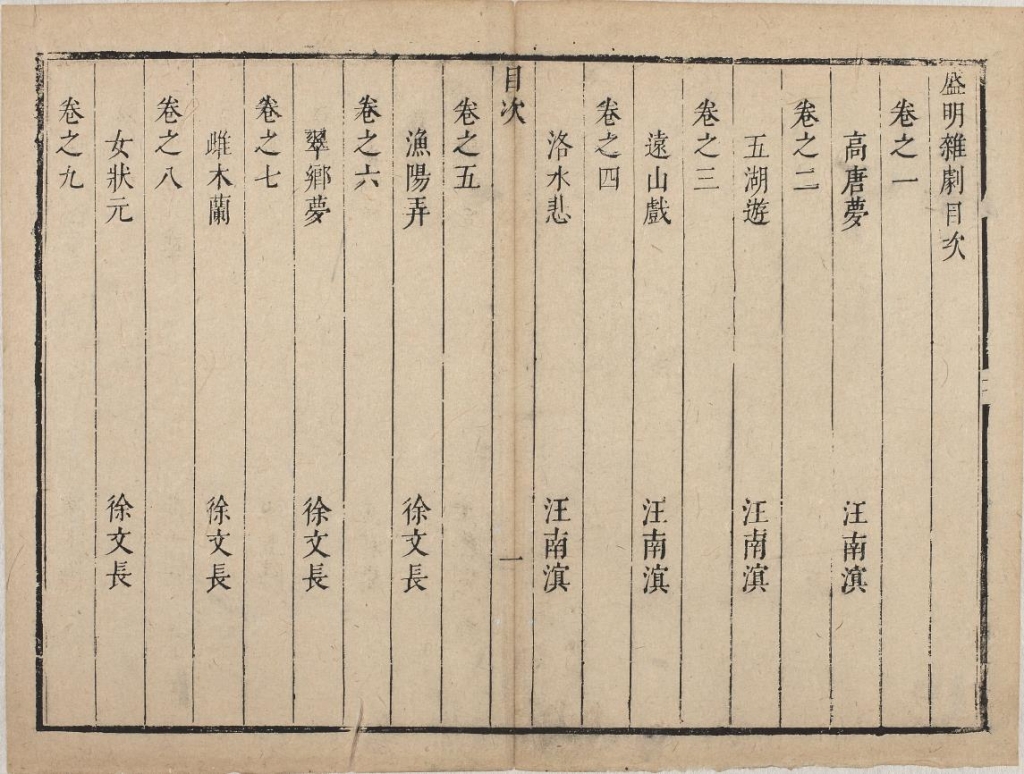 盛明雜劇目次
卷之一
高唐夢 汪南溟
卷之二
五湖遊 汪南溟
卷之三
遠山戲 汪南溟
卷之四
洛水悲 汪南溟
目次 一
卷之五
漁陽弄 徐文長
卷之六
翠鄉夢 徐文長
卷之七
雌木蘭 徐文長
卷之八
女狀元 徐文長
卷之九